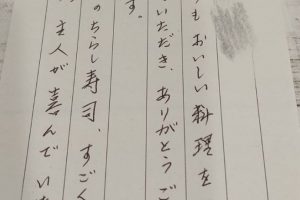 もおいしい料理を
いただき、ありがとうご
す。
のちらし寿司、すごく
主人が喜んでいた